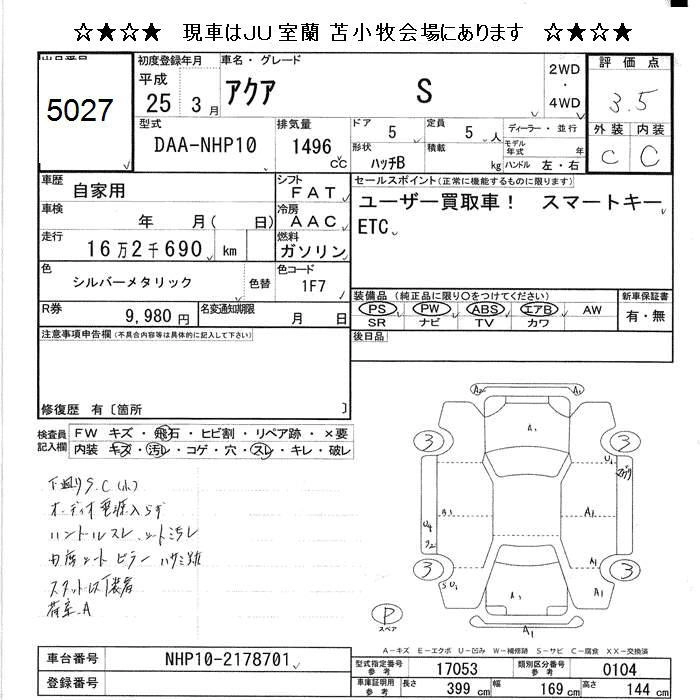 ☆★☆★ 現車はJU室蘭 苫小牧会場にあります ☆★☆★
出品番号
5027
初度登録年月
平成
25 3月
車名・グレード
アクア S
2WD
・
4WD
評価点
3.5
外装 内装
C C
型式
DAA-NHP10
排気量
1496
cc
ドア 5
定員 5 人
形状 ハッチB
積載 kg
ディーラー・並行
モデル年式 年
ハンドル 左・右
車歴 自家用
シフト FAT
車検 年 月( 日)
冷房 AAC
走行 16万2千690 km
燃料 ガソリン
色 シルバーメタリック 色替
色コード 1F7
R券 9,980円
名変通知期限 月 日
セールスポイント(正常に機能するものに限ります)
ユーザー買取車! スマートキー
ETC
装備品(純正品に限り○をつけてください)
PS PW ABS エアB AW
SR ナビ TV カワ
新車保証書
有・無
後日品
注意事項申告欄(不具合内容等は具体的に記入して下さい)
修復歴 有〔箇所 〕
検査員記入欄
FW キズ・飛石・ヒビ割・リペア跡・×要
内装 キズ・汚レ・コゲ・穴・スレ・キレ・破レ
下廻りS.C(小)
オーディオ電源入らず
ハンドルスレ シート汚レ
スタットレス1装着
荷室A
A2 A1
A1
3 3
U1
A1 A1
U4
S2
A1
3 3
S U1
A1
A1
P
スペア
A1
A-キズ E-エクボ U-凹み W-補修跡 S-サビ C-腐食 XX-交換済
車台番号 NHP10-2178701
登録番号
型式指定番号 参考 17053
類別区分番号 参考 0104
車庫証明用 参考 長さ 399 cm 幅 169 cm 高さ 144 cm